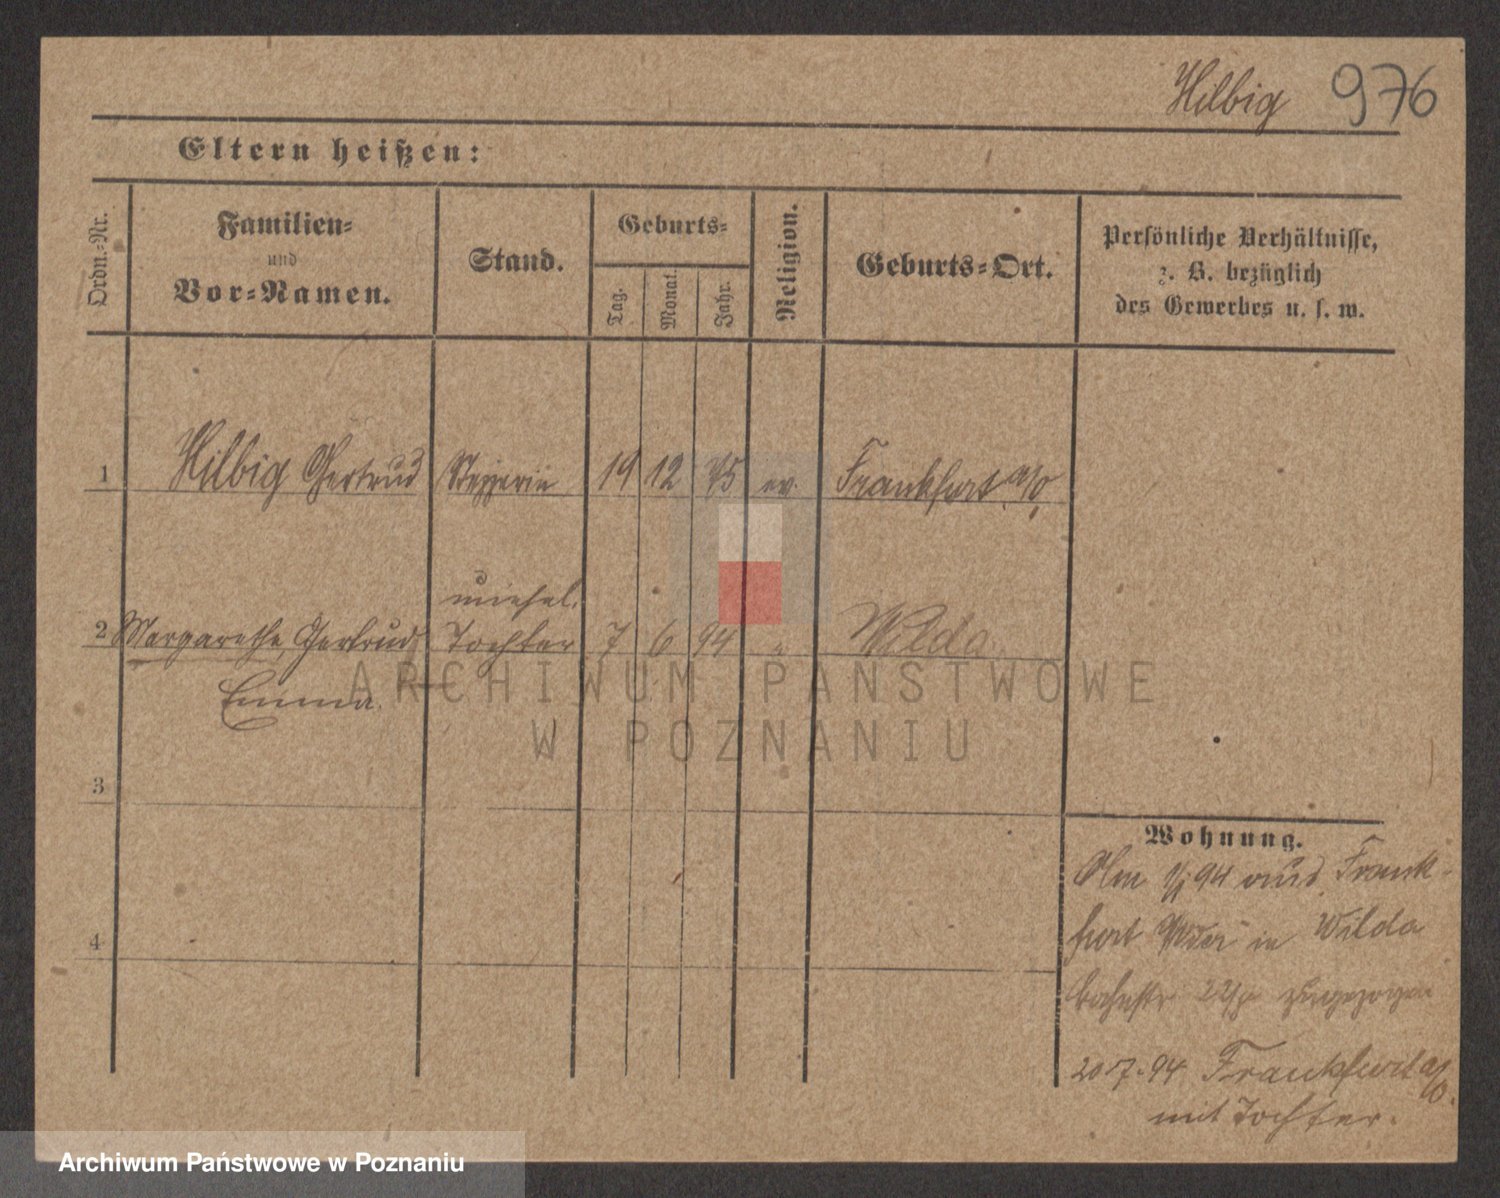 Hilbig 976
Eltern heißen:
Ordn.-Nr.
Familien-
und
Vor-Namen.
Stand.
Geburts-
Tag.
Monat.
Jahr.
Religion.
Geburts-Ort.
Persönliche Verhältnisse,
z. B. bezüglich
des Gewerbes u. s. w.
1 Hilbig Gertrud Stepperin 19 12 75 ev. Frankfurt a/O
unehel.
2 Margarethe, Gertrud Tochter 7 6 94 " Wilda
Emma
3
4
Wohnung.
Am 1/ 94 aus Frank-
furt Oder in Wilda
Bahnstr zugezogen
20.7.94 Frankfurt a/O.
mit Tochter.
ARCHIWUM PAŃSTWOWE
W POZNANIU
Archiwum Państwowe w Poznaniu